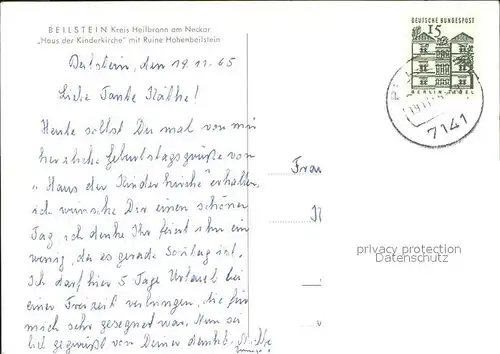 BEILSTEIN Kreis Heilbronn am Neckar
„Haus der Kinderkirche" mit Ruine Hohenbeilstein
Beilstein, den 19.11.65
Liebe Tante Käthe!
Heute sollst Du mal von mir
herzliche Geburtstagsgrüße von
„Haus der Kinderkirche" erhalten,
ich wünsche Dir einen schönen
Tag, ich denke Ihr feiert ihn ein
wenig, da es gerade Sonntag ist.
Ich darf hier 5 Tage Urlaub bei
einer Freizeit verbringen, die für
mich sehr gesegnet war. Nun sei
lieb gegrüßt von Deiner dankb.
DEUTSCHE BUNDESPOST
15
BERLIN TEGEL
7141
Frau
privacy protection
Datenschutz